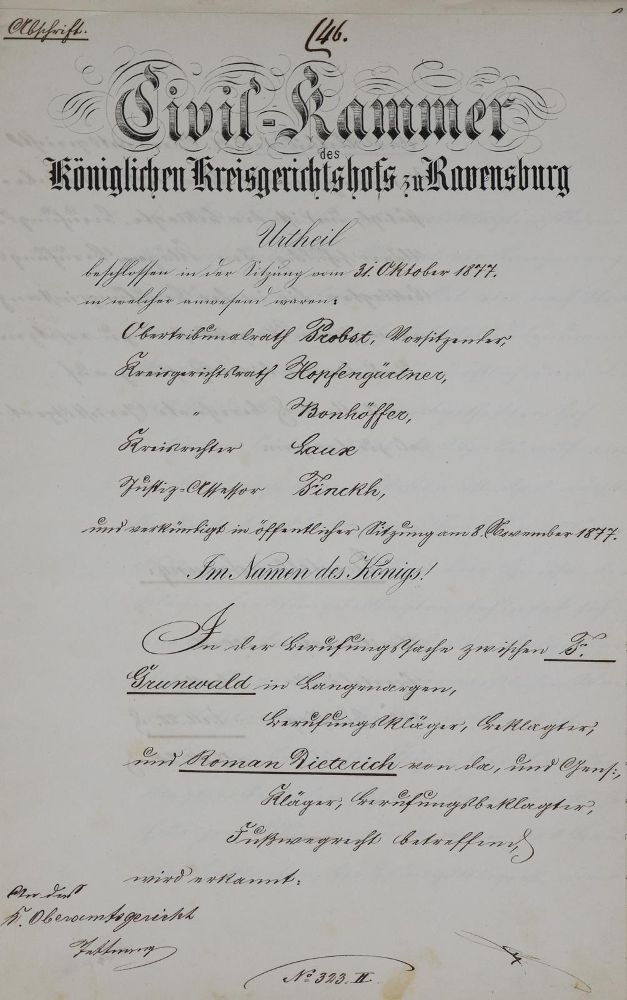 Abschrift.
46.
Civil-Kammer
des
Königlichen Kreisgerichtshofs zu Ravensburg
Urtheil
beschlossen in der Sitzung vom 31. Oktober 1877.
in welcher anwesend waren:
Obertribunalrath Probst, Vorsitzender,
Kreisgerichtsrath Hopfengärtner,
" Bonhöffer,
Kreisrichter Laux
Justiz-Assessor Finckh,
und verkündigt in öffentlicher Sitzung am 8. November 1877.
Im Namen des Königs!
In der Berufungssache zwischen F.
Grunwald in Langenargen,
Berufungskläger, Beklagter,
und Roman Dieterich von da, und Gens:,
Kläger, Berufungsbeklagter,
Fußwegrecht betreffend,
wird erkannt:
An das
K. Oberamtsgericht
Tettnang
No 323. II